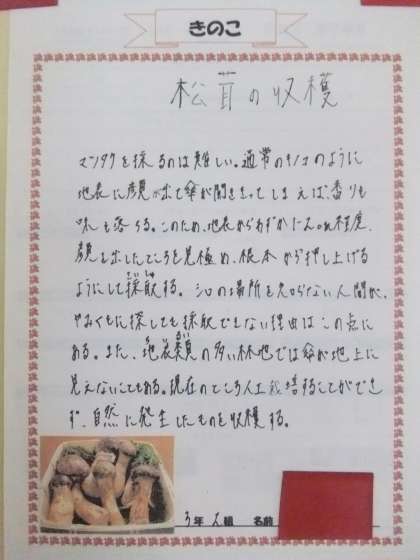 きのこ
松茸の収穫
マツタケを採るのは難しい。通常のキノコのように
地表に顔が出て傘が開ききってしまえば、香りも
味も落ちる。このため、地表からわずかに2cm程度、
顔を出したところを見極め、根本から押し上げる
ようにして採取する。シロの場所を知らない人間が、
やみくもに探しても採取できない理由はこの点に
ある。また、地衣類の多い林地では傘が地上に
見えないこともある。現在のところ人工栽培することができ
ず、自然に発生したものを収穫する。
3年 2組 名前